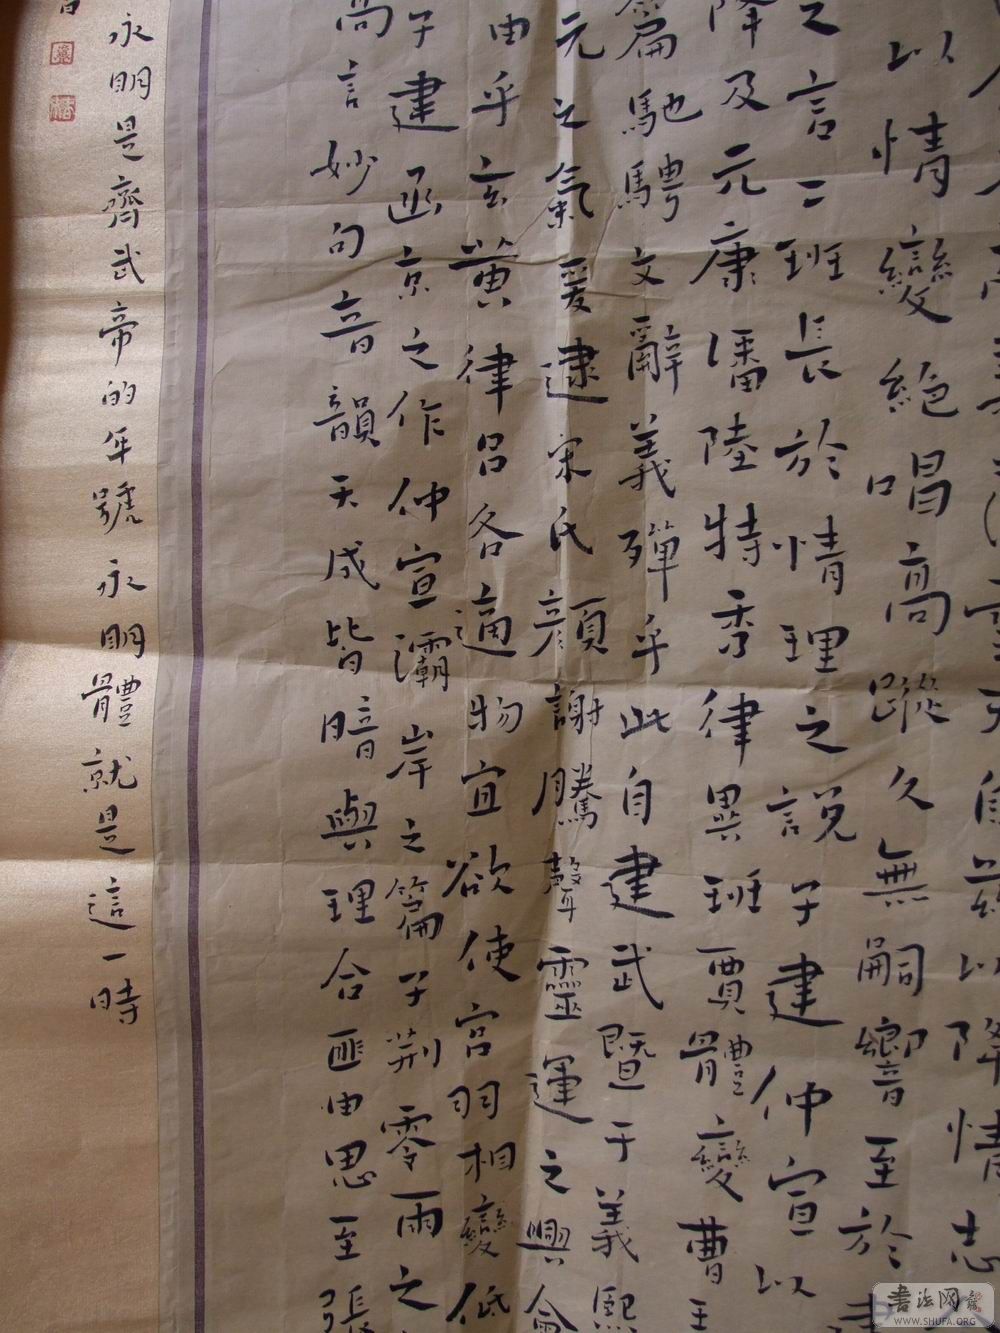 天自茲以降情志
以情變絕唱高蹤久無嗣響至於建
之言二班長於情理之說子建仲宣以
降及元康潘陸特秀律異班賈體變曹王
篇馳騁文辭義殫乎此自建武暨于義熙
元之氣爰逮宋氏顏謝騰聲靈運之興會
由乎玄黃律呂各適物宜欲使宮羽相變低
子建函京之作仲宣灞岸之篇子荊零雨之
高言妙句音韻天成皆暗與理合匪由思至張
永明是齊武帝的年號永明體就是這一時
书法网
WWW.SHUFA.ORG